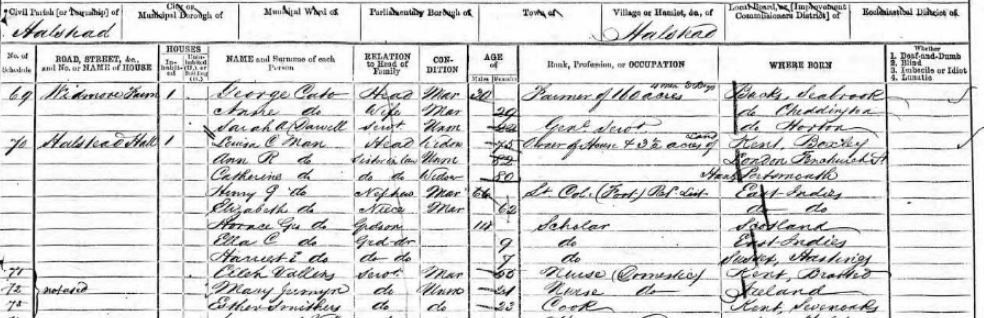 Civil Parish [or Township] of
City or Municipal Borough of
Municipal Ward of
Parliamentary Borough of
Town of
Village or Hamlet, &c., of
Local Board, or [Improvement Commissioners District] of
Ecclesiastical District of
Halstead
Halstead
No. of Schedule ROAD, STREET, &c., and No. or NAME of HOUSE HOUSES In-habited Uninhabited (U.), or Building (B.) NAME and Surname of each Person RELATION to Head of Family CON-DITION AGE of Males Females Rank, Profession, or OCCUPATION WHERE BORN Whether 1. Deaf-and-Dumb 2. Blind 3. Imbecile or Idiot 4. Lunatic
69 Widmore Farm 1 George Cato Head Mar 30 Farmer of 160 acres 4 men 3 Boys Bucks, Seabrook
Annie do Wife Mar 29 do Cheddington
Sarah A Dawell Servt Unm Genl Servt do Horton
70 Halstead Hall 1 Louisa C Man Head Widow 75 Owner of House & 32 acres of Land Kent, Boxley
Ann R do Sister in law Unm 82 London Fenchurch St
Catherine do do do Widow 80 Hants Portsmouth
Henry G do Nephew Mar 66 Lt Col. (Foot) Ret. List East Indies
Elizabeth do Niece Mar 62 do do
Horace Geo do Grdson 14 Scholar Scotland
Ella C do Grd dr 9 do East Indies
Harriet E do do do 7 do Sussex, Hastings
71 Eileh Vallins Servt Mar Nurse (Domestic) Kent, Brasted
72 not used Mary Jermyn do Unm 21 Nurse do Ireland
73 Esther Smithers do do 23 Cook Kent, Sevenoaks